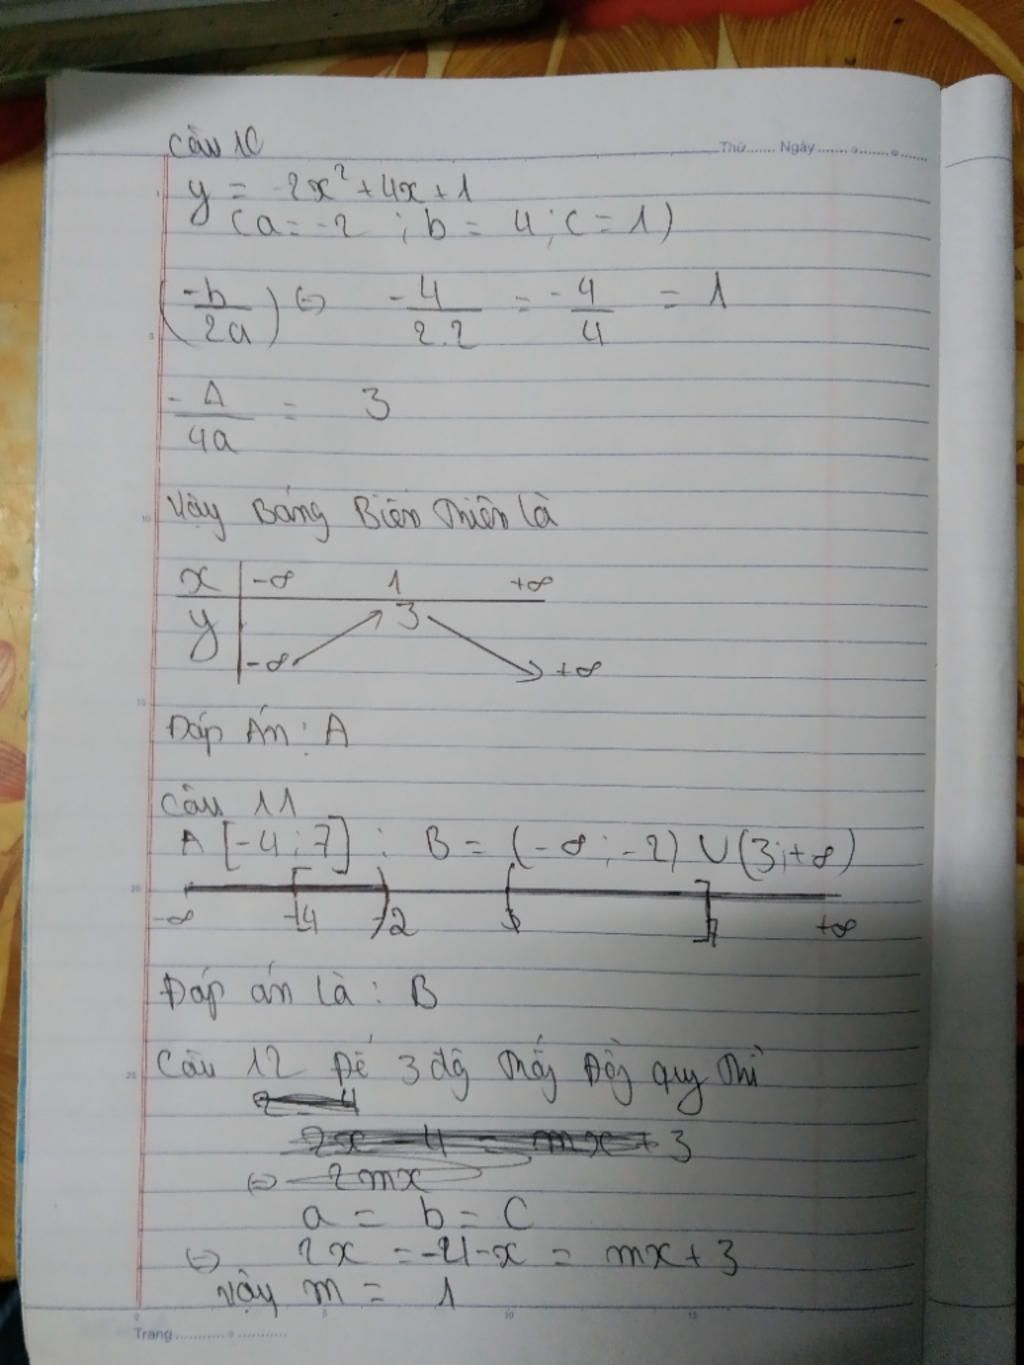 Câu 10
Thứ....... Ngày .......o.......o.......
y = -2x² + 4x + 1
(a = -2 ; b = 4 ; c = 1)
(-b/2a) (=) -4/2.2 = -4/4 = 1
-Δ/4a = 3
Vậy Bảng Biến Thiên là
x -∞ 1 +∞
y 3
-∞ +∞
Đáp Án : A
Câu 11
A [-4 ; 7] ; B = (-∞ ; -2) ∪ (3 ; +∞)
-∞ -4 -2 +∞
Đáp án là : B
Câu 12 Để 3 đg thẳg Đồg quy thì
2x - 4 = mx + 3
(=) 2mx
a = b = C
(=) 2x = -4-x = mx + 3
Vậy m = 1
Trang ...........o............